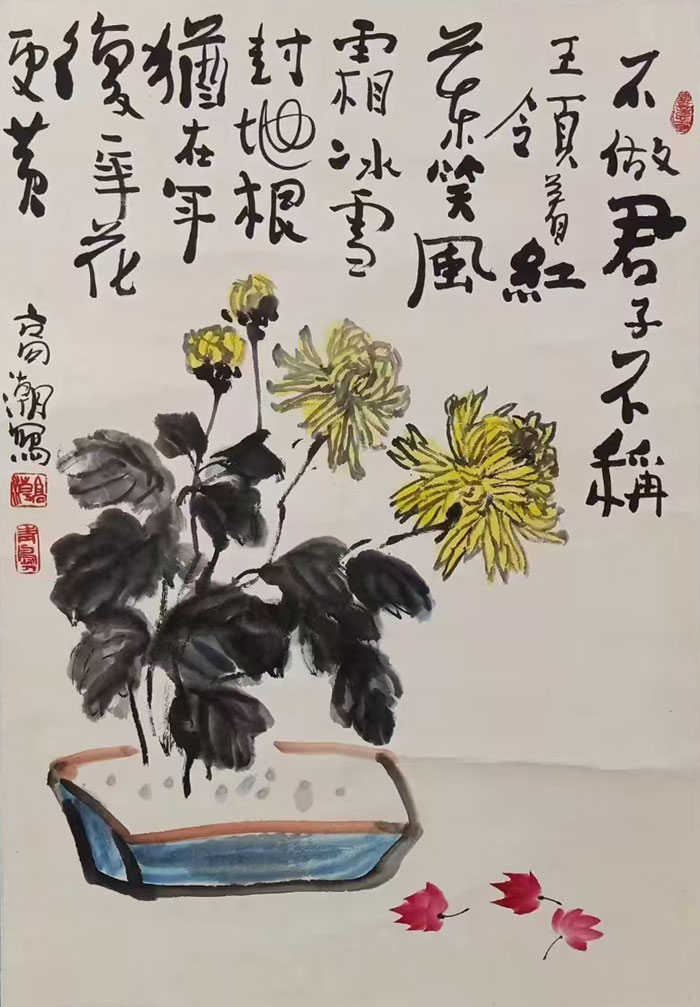 不做君子不稱
王領着紅
葉笑風
霜冰雪
封地根
猶在年
復一年花
更黃
高潮寫